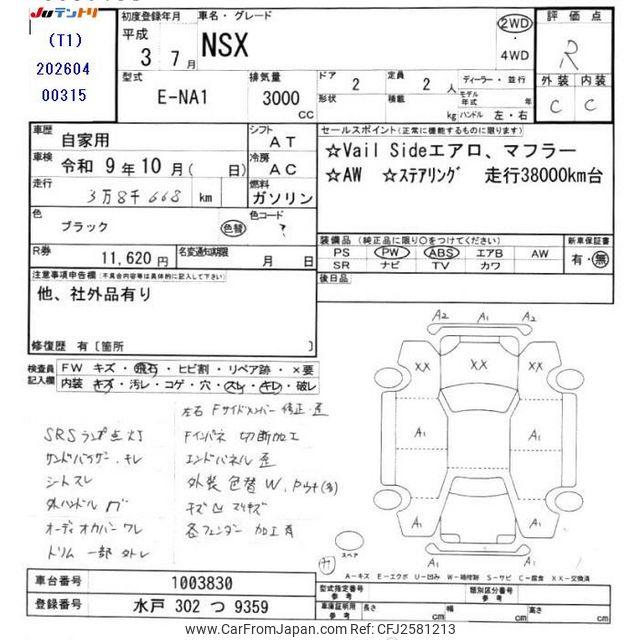 JUテントリ
(T1)
202604
00315
初度登録年月
平成
3 7月
車名・グレード
NSX
2WD
・
4WD
評価点
R
外装 内装
C C
型式
E-NA1
排気量
3000
cc
ドア 2
形状
定員 2 人
積載 kg
ディーラー・並行
モデル年式 年
ハンドル 左・右
車歴 自家用
シフト AT
車検 令和 9年10月( 日)
冷房 AC
走行 3万8千668 km
燃料 ガソリン
色 ブラック 色替
色コード ?
R券 11,620円
名変通知期限 月 日
セールスポイント(正常に機能するものに限ります)
☆Vail Sideエアロ、マフラー
☆AW ☆ステアリング 走行38000km台
装備品 (純正品に限り○をつけてください)
PS PW ABS エアB AW
SR ナビ TV カワ
新車保証書
有・無
後日品
注意事項申告欄(不具合内容等は具体的に記入して下さい)
他、社外品有り
修復歴 有〔箇所 〕
検査員記入欄
FW キズ・飛石・ヒビ割・リペア跡・×要
内装・キズ・汚レ・コゲ・穴・スレ・キレ・破レ
左右 Fサイドメンバー 修正・歪
SRSランプ点灯
Fインパネ 切断加工
サンドバイザー キレ
エンドパネル 歪
シートスレ
外装 色替 W、Pウチ(多)
外ハンドル
キズ凹
オーディオカバー ワレ
各フェンダー 加工有
トリム 一部 外レ
A2 A1 A2
XX XX XX
A1 A1
A1 A1
A1
スペア
A-キズ E-エクボ U-凹み W-補修跡 S-サビ C-腐食 XX-交換済
車台番号 1003830
登録番号 水戸 302 つ 9359
型式指定番号
参考
類別区分番号
参考
車庫証明用
参考
長さ cm
幅 cm
高さ cm
Photo by CarFromJapan.com - REF CJ2581213